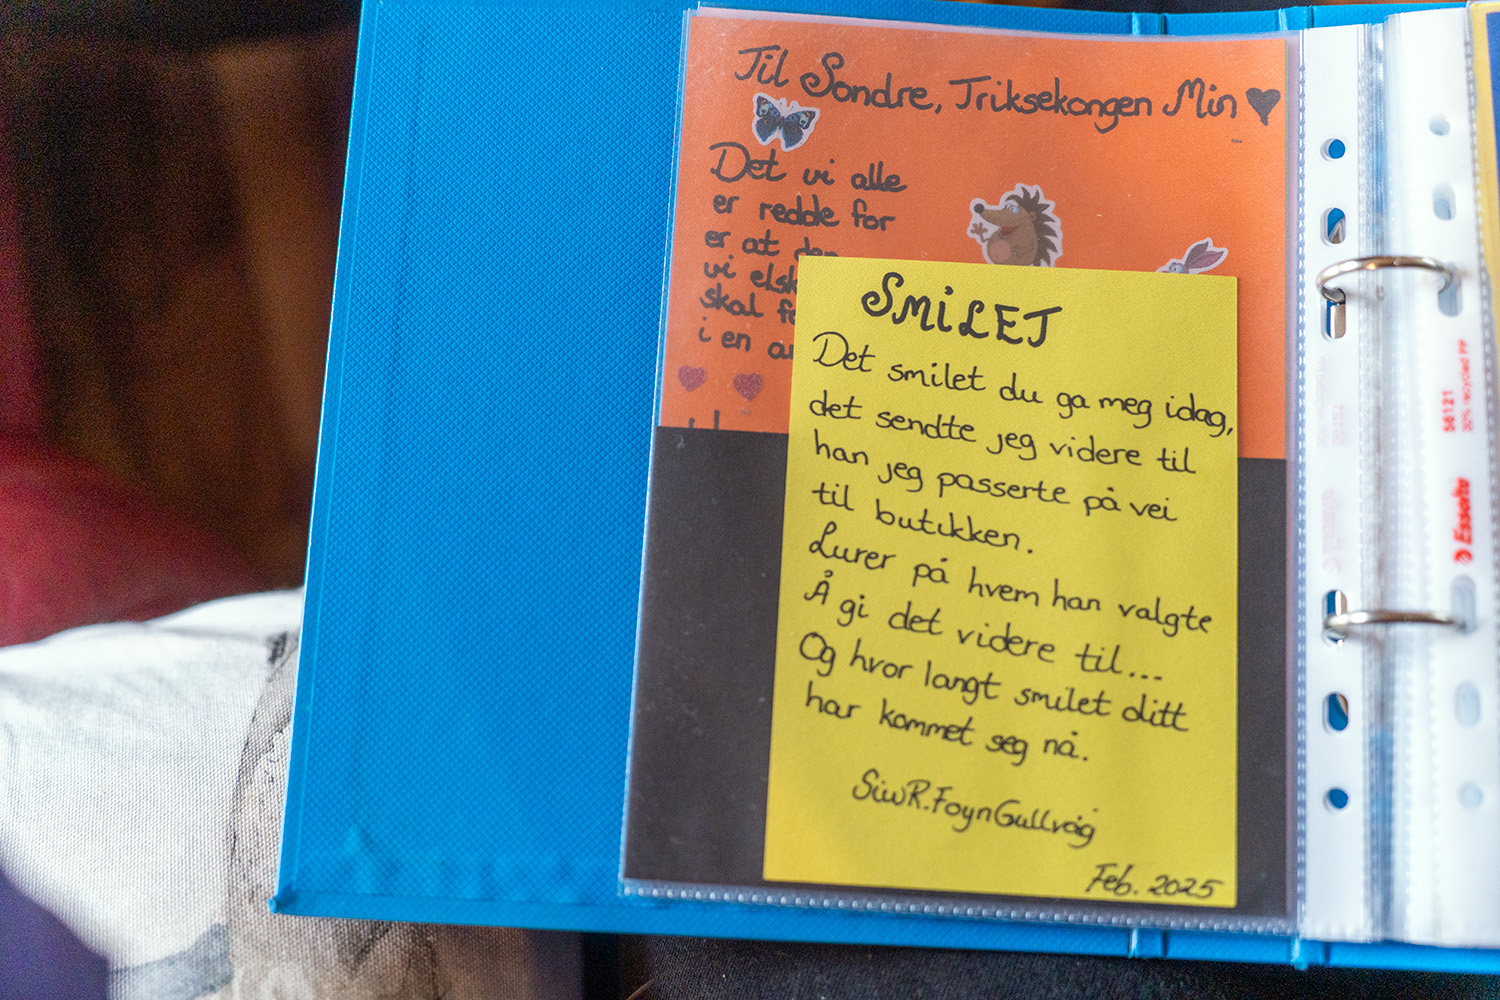 Til Sondre, Triksekongen Min
Det vi alle
er redde for
er at den
vi
skal
i en
SMiLET
Det smilet du ga meg idag,
det sendte jeg videre til
han jeg passerte på vei
til butikken.
Lurer på hvem han valgte
Å gi det videre til...
Og hvor langt smilet ditt
har kommet seg nå.
Siw R. Foyn Gullvåg
Feb. 2025
56121
Esselte